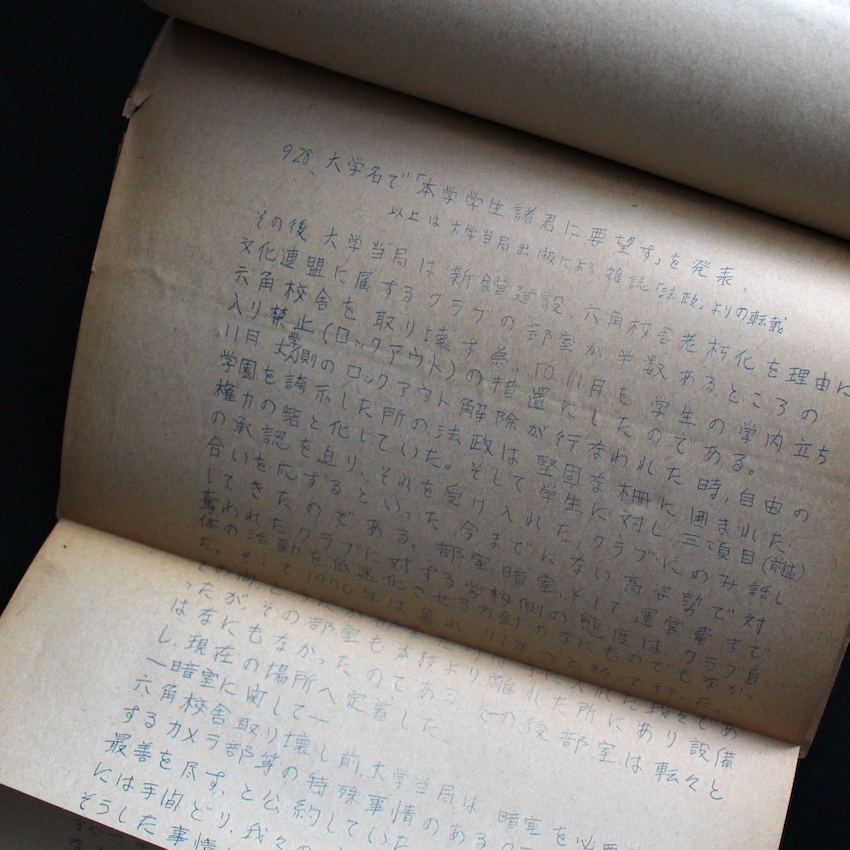 9.28 大学名で「本学学生諸君に要望す」を発表。
以上は大学当局出版による雑誌「法政」よりの転載
その後 大学当局は新館建設、六角校舎老朽化を理由に
文化連盟に属するクラブの部室が半数あるところの
六角校舎を取り壊す為、10 11月を学生の学内立ち
入り禁止(ロックアウト)の措置にしたのである。
11月 大学側のロックアウト解除が行なわれた時,自由の
学園を誇示した所の法政は堅固な柵に囲まれた
権力の砦と化していた。そして学生に対し三項目(前述)
の承認を迫り、それを受け入れたクラブにのみ話し
合いを応ずるといった今までにない高姿勢で対
してきたのである。部室 暗室 そして運営費まで
奪われたクラブに対する学校側の態度は、クラブ自
体の活動を低迷化させる方針のなにものでもなかっ
た。そして1970年は暮れ
ったが、その部室も本校より離れた所にあり設備
はなにもなかったのである。その後部室は転々と
し、現在の場所へ定着した。
一暗室に関して一
六角校舎取り壊し前,大学当局は 暗室を必要
するカメラ部等の特殊事情のあるク
最善を尽す,と公約していた
には手間どり,我々の
そうした事情